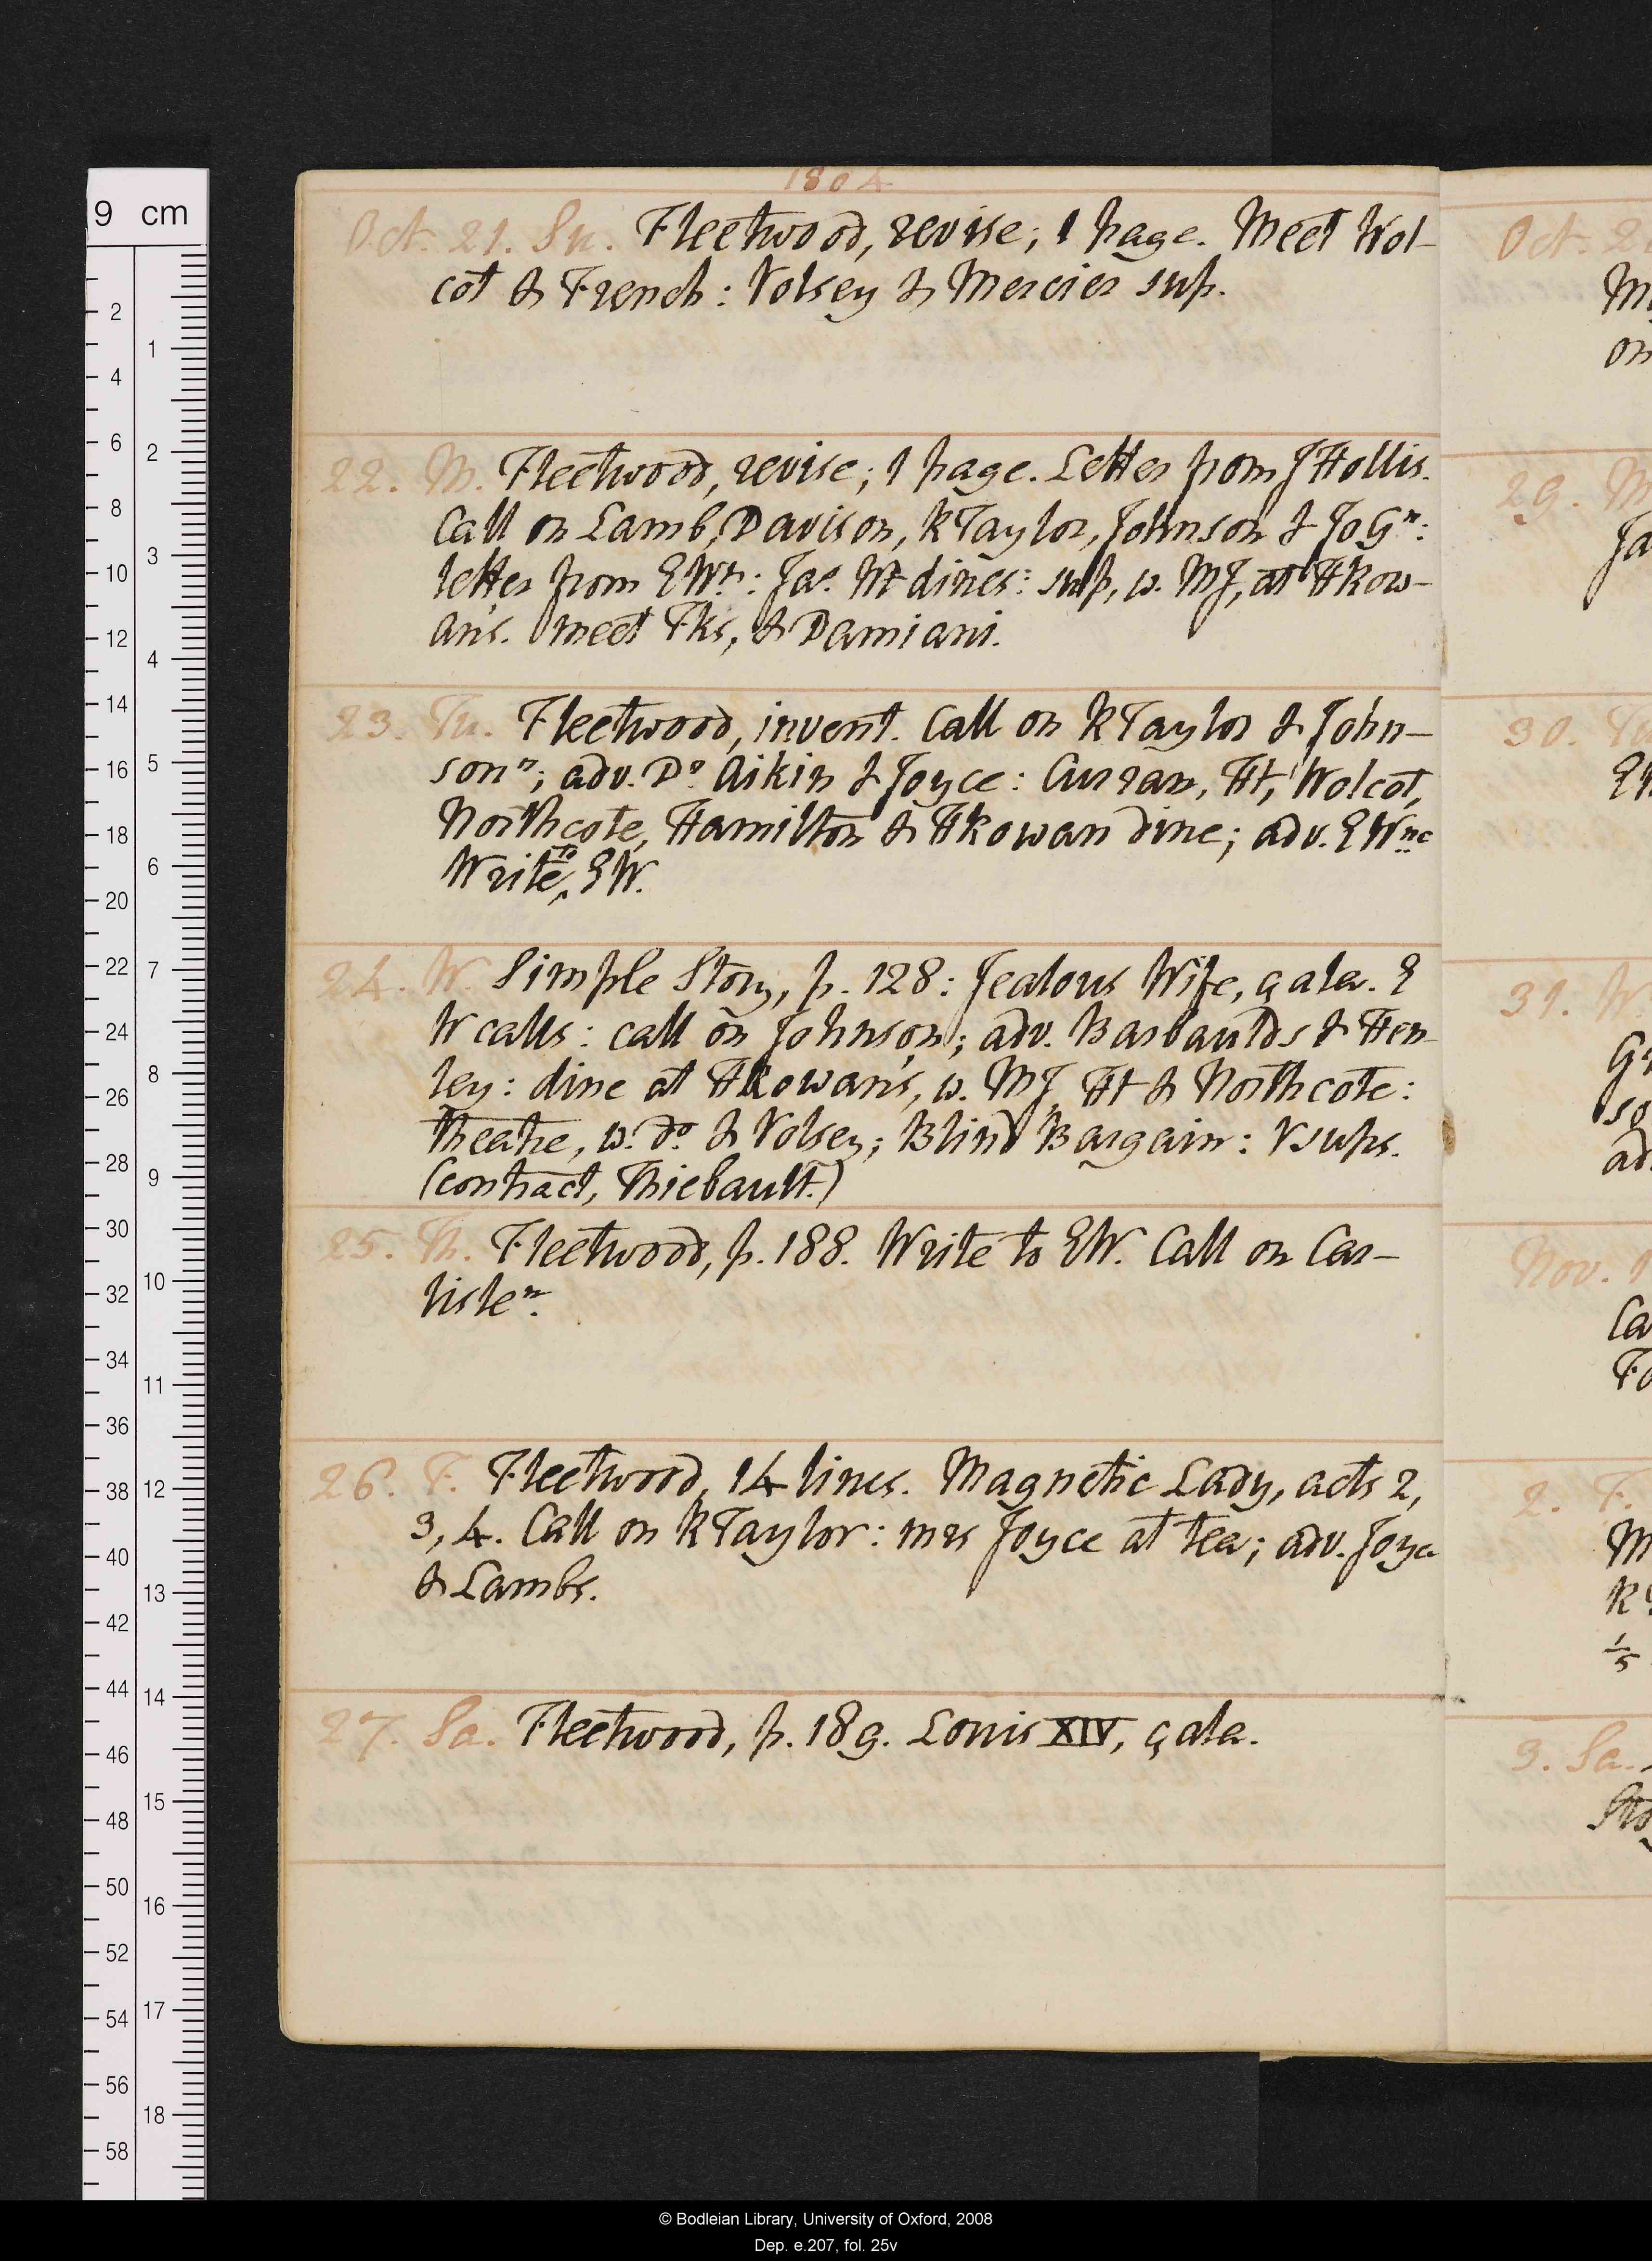 1804
Oct. 21. Su. Fleetwood, revise; 1 page. Meet Wol-
cot & French: Volsey & Mercier sup.
22. M. Fleetwood, revise; 1 page. Letter from J Hollis.
Call on Lamb, Davison, R Taylor, Johnson & Jo Gn:
letter from E Wn: Jas. Mt dines: sup, w. MJ, at HRow-
an's. meet Tks, & Damiani.
23. Tu. Fleetwood, invent. Call on R Taylor & John-
sonn; adv. Dr Aikin & Joyce: Curran, Ht, Wolcot,
Northcote, Hamilton & HRowan dine; adv. E Wne
Write to EW.
24. W. Simple Story, p. 128: Jealous Wife, çala. E
W calls: call on Johnson; adv. Barbaulds & Hen-
ley: dine at HRowan's, w. MJ, Ht & Northcote:
theatre, w. do & Volsey; Blind Bargain: V sups.
(contract, Thiebault.)
25. Th. Fleetwood, p. 188. Write to EW. Call on Car-
lislen.
26. F. Fleetwood, 14 lines. Magnetic Lady, acts 2,
3, 4. Call on R Taylor: mrs Joyce at tea; adv. Joyce
& Lambs.
27. Sa. Fleetwood, p. 189. Louis XIV, çala.
Oct. 2
M
on
29. M
Ja
30. Tu
EW
31. W
G
so
ad
Nov. 1
Ca
Fo
2. F.
M
R
1/5
3. Sa.
Sto
9 cm
2
4
6
8
10
12
14
16
18
20
22
24
26
28
30
32
34
36
38
40
42
44
46
48
50
52
54
56
58
1
2
3
4
5
6
7
8
9
10
11
12
13
14
15
16
17
18
© Bodleian Library, University of Oxford, 2008
Dep. e.207, fol. 25v